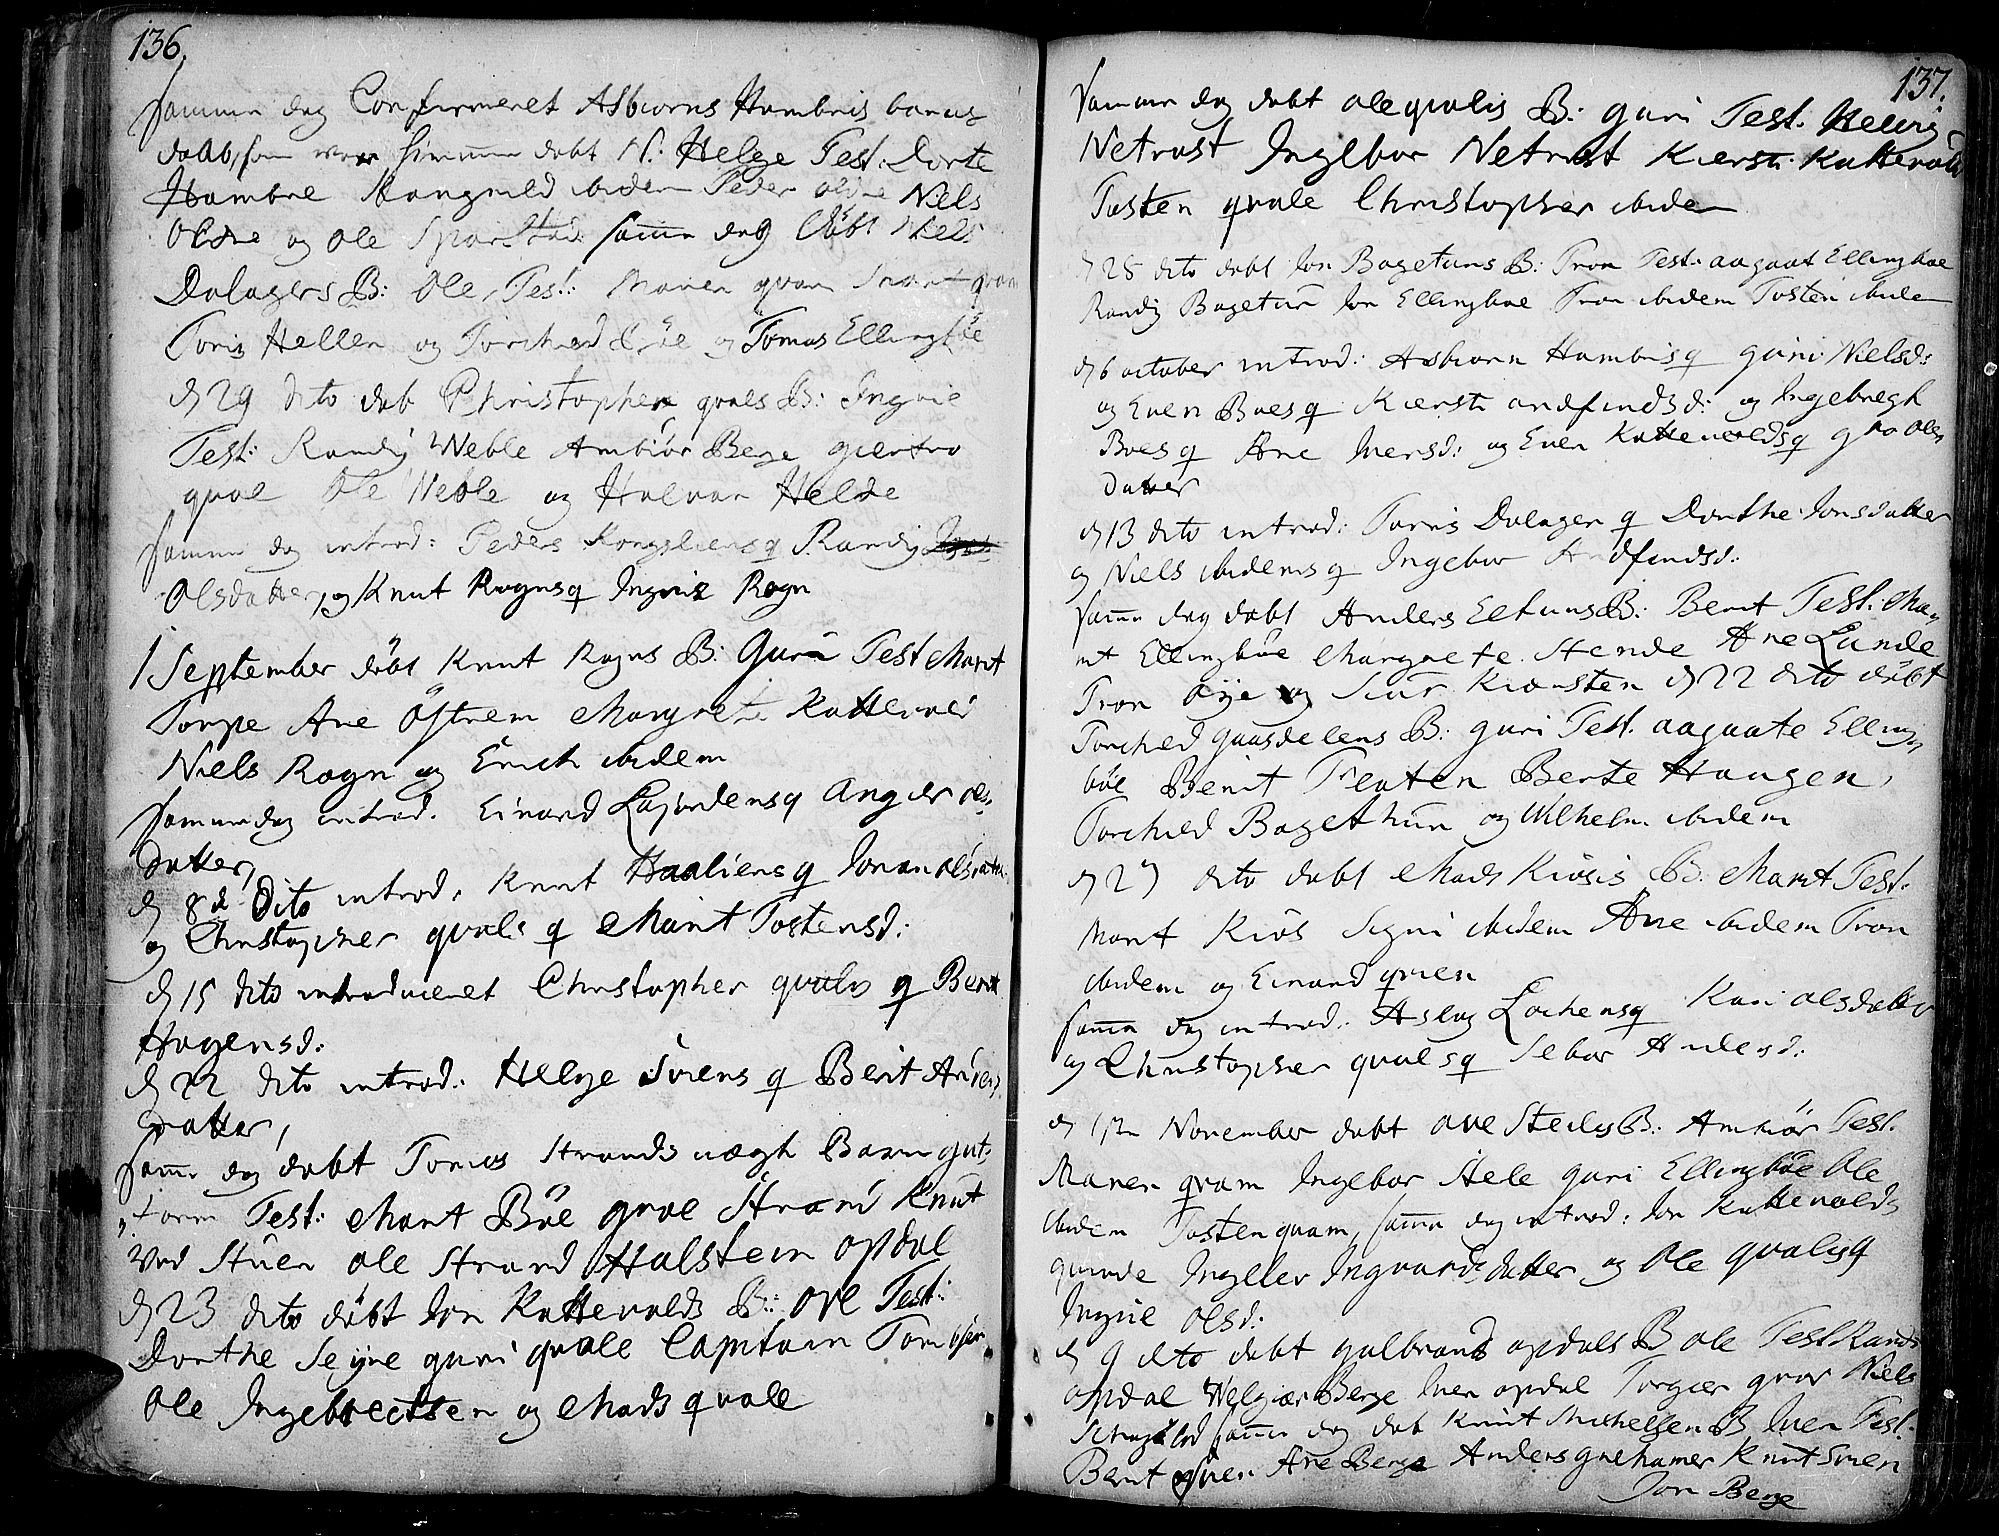 136.
samme dag Confirmeret Asbiorns Hambris barns
daab, som var hiemme døbt N: Helge Test: Dorte
Hambre Rangnild ibidem Peder Oldre Niels
Oldre og Ole Sparstad samme dag døbt Niels
Dalagers B: Ole, Test: Maren quam Marit quam
Toris Hellen og Torchied Bøe og Tomas Ellingbøe
d 29 dito døb Christopher quals B: Ingrie
Test: Randij Weble Ambiør Berge giertro
quale Ole Weble og Halvor Helde
samme dag introd: Peders Kongsliens q Randij
Olsdatter, og Knut Rogns q Ingrie Rogn
1 September døbt Knut Rogns B: Guri Test Marit
Torpe Ane Østrem Margrete Kattevold
Niels Rogn og Erich ibidem
samme dag introd. Einard Lajordens q Angier Ols-
datter,
d 8de Dito introd. Knut Haaliens q Joran Olsdatter
og Christopher quals q Marit Tostensd:
d 15 dito introduceret Christopher quals q Berit
Hagensd:
d 22 dito introd: Helge Sviens q Berit Anders-
datter,
samme dag døbt Tomas Strands uægte Barn gut-
torm Test: Marit Bøe groe Strand Knut
Ved Støen Ole Strand Halstein opdal
d 23 dito døbt Jon Kattevolds B: Ole Test:
Dorthe Seyne guri quale Capitain
Ole Ingebrectsen og Mads quale
137.
samme dag døbt Ole qualis B: guri Test: Helvig
Netrost Ingebor Netrost Kiersti Kattevold
Tosten quale Christopher ibidem
d 28 dito døbt Jon Bagetuns B: Tron Test: aagaat Ellingbøe
Randij Bagetun Jon Ellingbøe Tron ibidem Tosten ibidem
d 6 october introd: Asbiorn Hambris q guri Nielsd:
og Even Boes q Kiersti andfindsd: og Ingebregt
Boes q Ane Iversd: og Even Kattevolds q groe Ols
datter
d 13 dito introd: Torris Dalager q Dorthe Jonsdatter
og Niels ibidems q Ingebor Andfindsd:
samme dag døbt Anders Eltuns B: Berit Test: Ma-
rit Ellingbøe Margrete Stende Ane Lunde
Tron Øye og Siur Kiørsten d 22 dito døbt
Torchied Gaasdelens B: guri Test. aagaate Elling
bøe Berit Fleaten Berte Haugen,
Torchied Bagethun og Wilhelm ibidem
d 27 dito døbt Mads Kiøsis B: Marit Test.
Marit Kiøs Signi ibidem Ane ibidem Tron
ibidem og Einard quien
samme dag introd: Aslag Lochens q Kari Olsdatter
og Christopher quales q Sebor Andersd:
d 1ste November døbt Ole Steles B: Ambiør Test.
Maren quam Ingebor Stele guri Ellingbøe Ole
ibidem Tosten quam, samme dag introd: Jon Kattevolds
quinde Ingeleer Ingvardsdatter og Ole quals q
Ingrie Olsd:
d 9 dito døbt gulbrand opdals B Ole Test Randi
opdal Welgiær Berge Iver opdal Torgier gvar Niels
samme dag døb Knut Michelsen B Iver Test.
Berit quien Ane Berge Anders gnehamer Knut Svien
Jon Berge